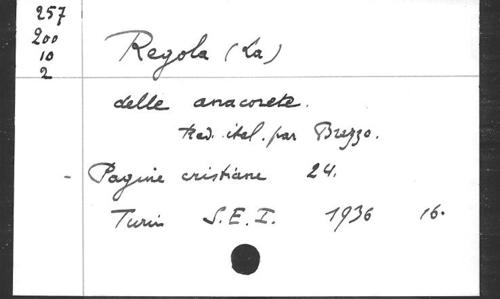 257
200
10
2
Regola (La)
delle anacorete.
trad. ital. par Brezzo.
- Pagine cristiane 24.
Turin S.E.I. 1936 16.